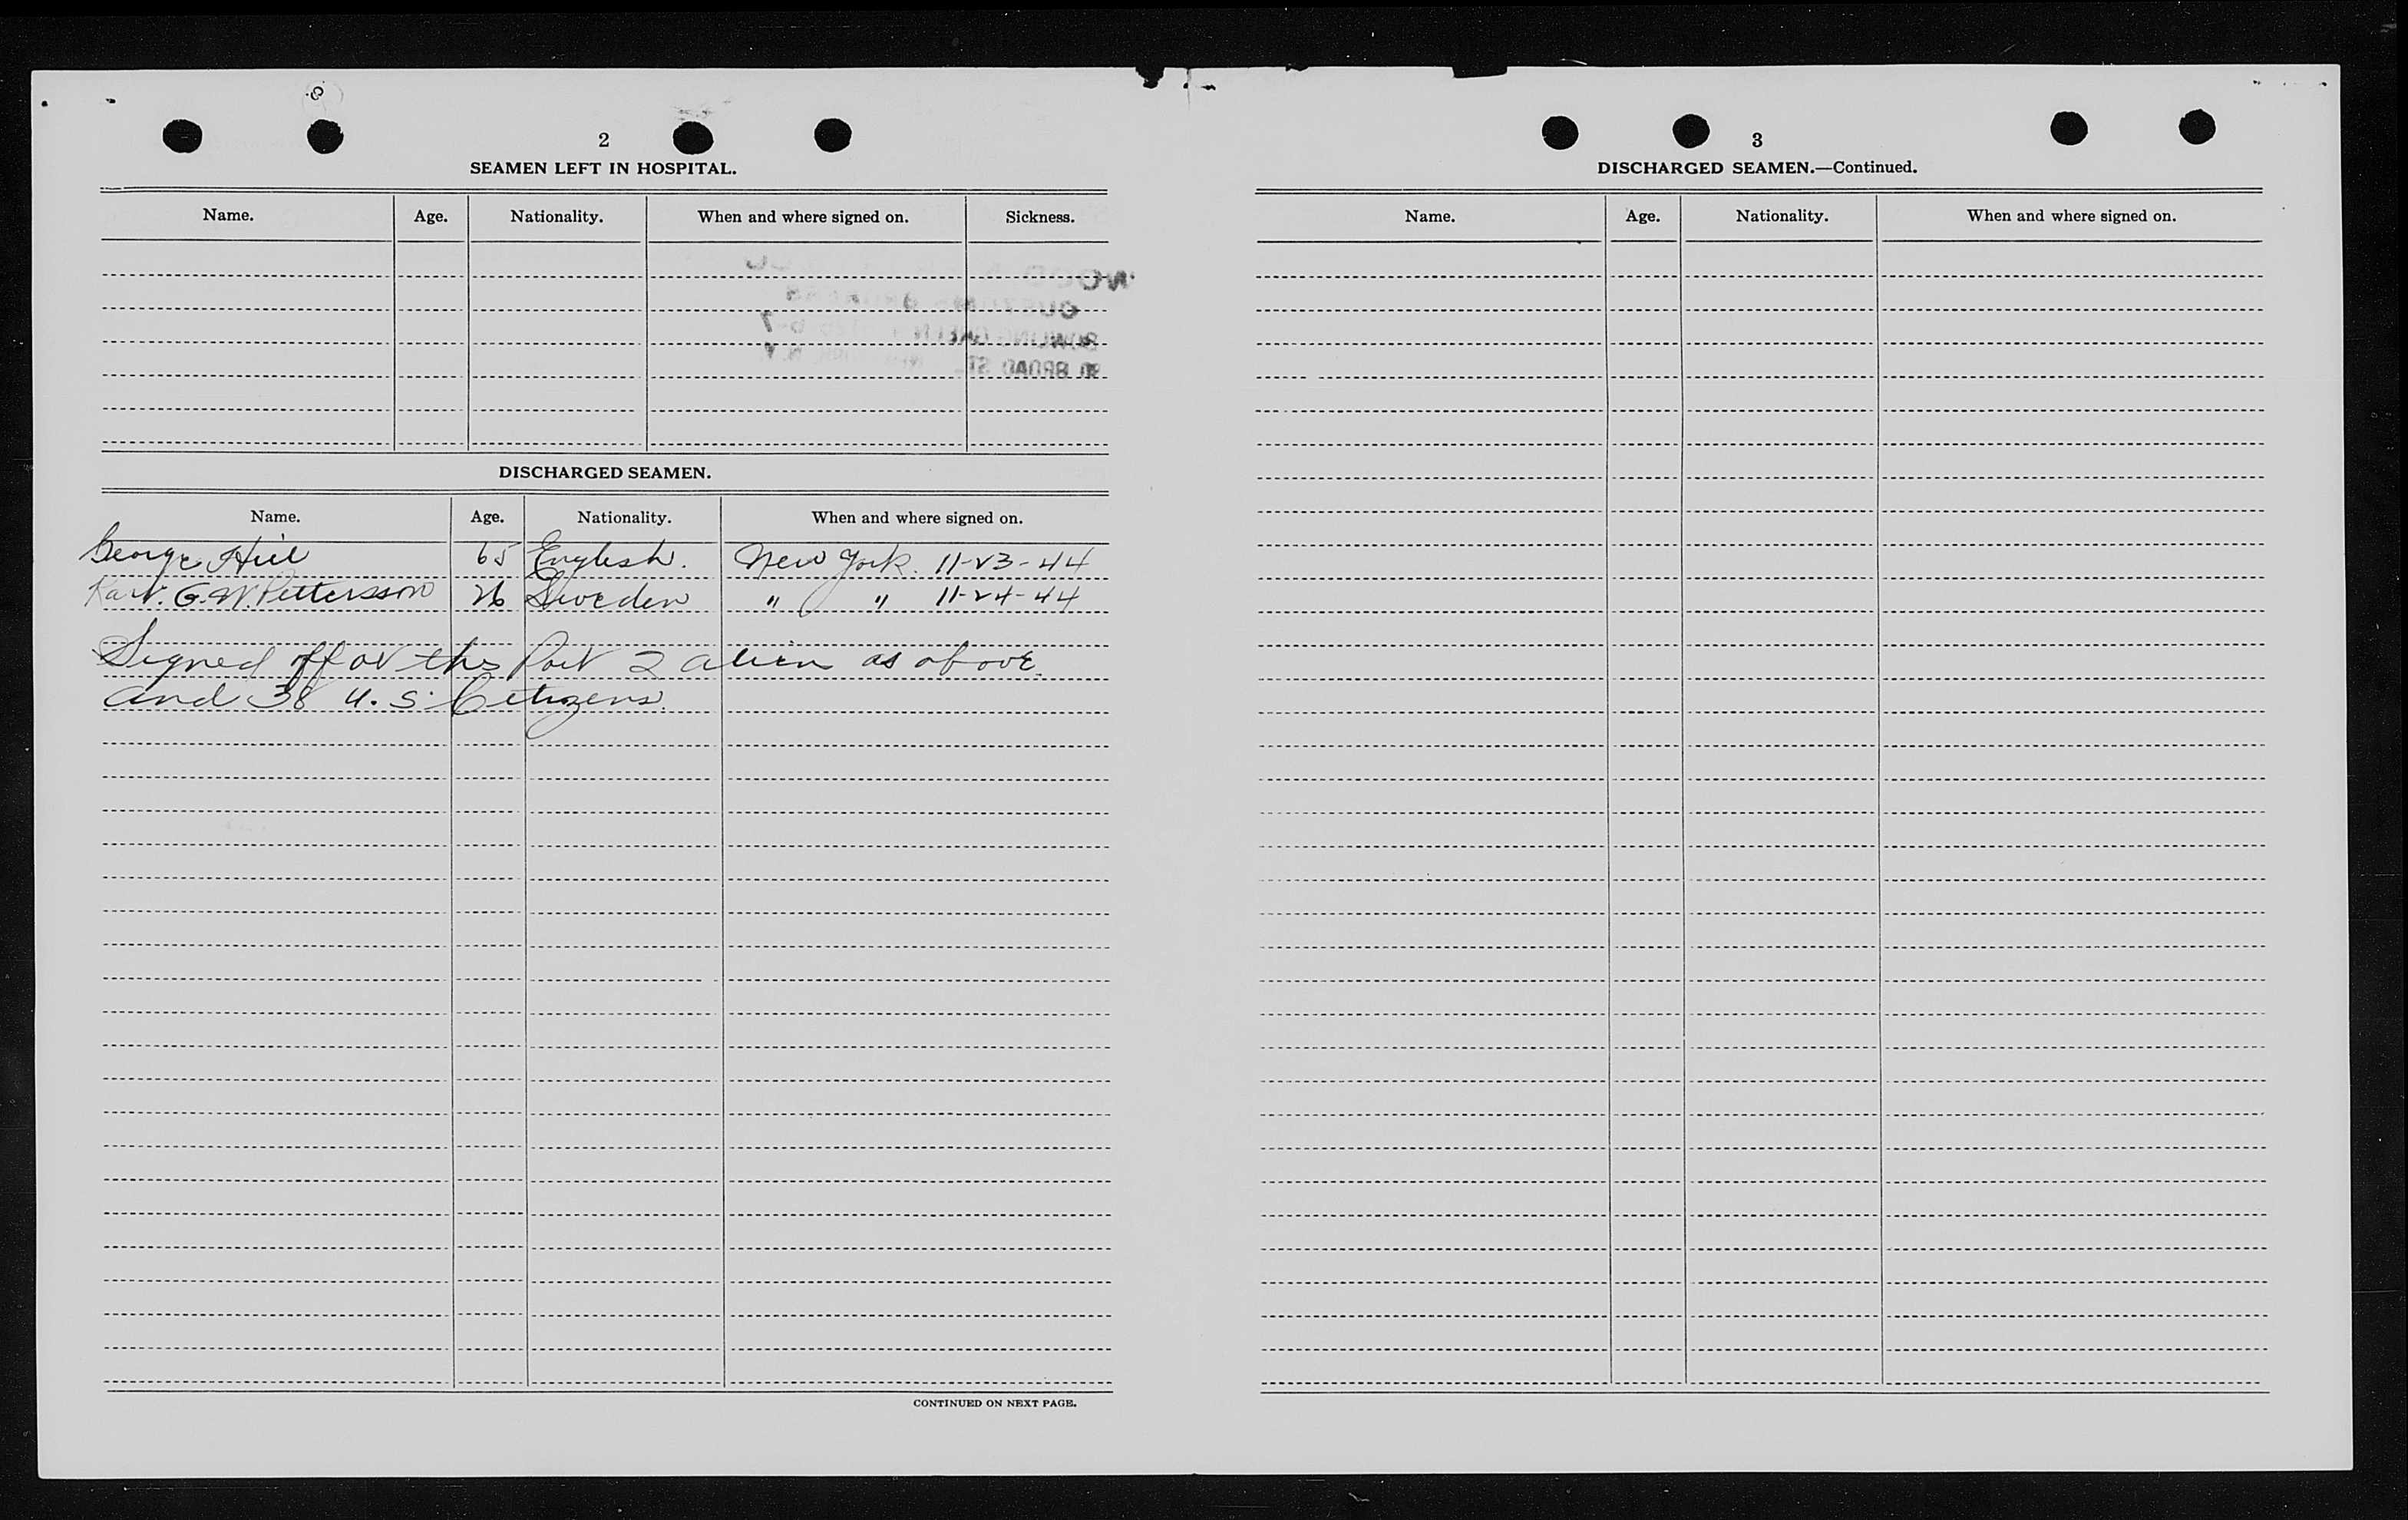 2
SEAMEN LEFT IN HOSPITAL.
Name. Age. Nationality. When and where signed on. Sickness.
DISCHARGED SEAMEN.
Name. Age. Nationality. When and where signed on.
George Hill 65 English. New York. 11-23-44
G. W. Pettersson 26 Sweden " " 11-24-44
Signed off at this Port 2 alien as above.
and 38 U.S. Citizens.
CONTINUED ON NEXT PAGE.
3
DISCHARGED SEAMEN.—Continued.
Name. Age. Nationality. When and where signed on.